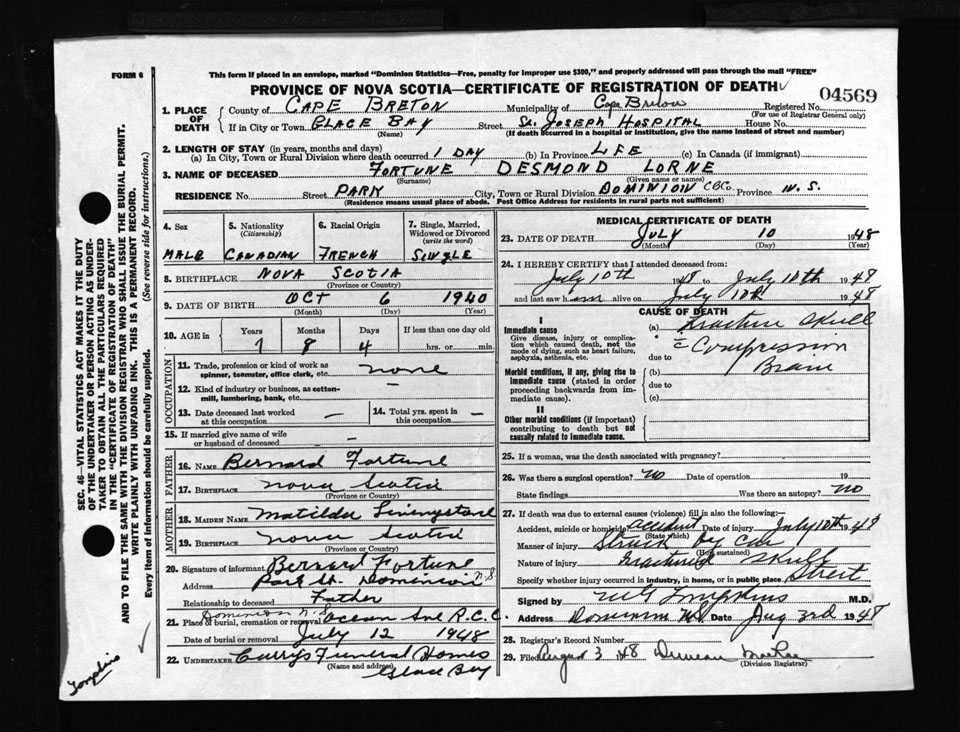 This form if placed in an envelope, marked "Dominion Statistics—Free, penalty for improper use $300," and properly addressed will pass through the mail "FREE"
FORM 6
PROVINCE OF NOVA SCOTIA—CERTIFICATE OF REGISTRATION OF DEATH
04569
1. PLACE OF DEATH
County of CAPE BRETON Municipality of Cape Breton Registered No.
(For use of Registrar General only)
If in City or Town GLACE BAY Street St. JOSEPH HOSPITAL House No.
(Name) (If death occurred in a hospital or institution, give the name instead of street and number)
2. LENGTH OF STAY (in years, months and days)
(a) In City, Town or Rural Division where death occurred 1 DAY (b) In Province LIFE (c) In Canada (if immigrant)
3. NAME OF DECEASED FORTUNE DESMOND LORNE
(Surname) (Given name or names)
RESIDENCE No. Street PARK City, Town or Rural Division DOMINION C.B.Co. Province N.S.
(Residence means usual place of abode. Post Office Address for residents in rural parts not sufficient)
4. Sex
MALE
5. Nationality (Citizenship)
CANADIAN
6. Racial Origin
FRENCH
7. Single, Married, Widowed or Divorced (write the word)
SINGLE
8. BIRTHPLACE NOVA SCOTIA
(Province or Country)
9. DATE OF BIRTH OCT 6 1940
(Month) (Day) (Year)
10. AGE in
Years Months Days If less than one day old
7 9 4 hrs. or min.
OCCUPATION
11. Trade, profession or kind of work as spinner, teamster, office clerk, etc. none
12. Kind of industry or business, as cotton-mill, lumbering, bank, etc. —
13. Date deceased last worked at this occupation — 14. Total yrs. spent in this occupation —
15. If married give name of wife or husband of deceased —
FATHER
16. NAME Bernard Fortune
17. BIRTHPLACE Nova Scotia
(Province or Country)
MOTHER
18. MAIDEN NAME Matilda
19. BIRTHPLACE Nova Scotia
(Province or Country)
20. Signature of informant Bernard Fortune
Address Park St. Dominion N.S.
Relationship to deceased Father
21. Place of burial, cremation or removal Dominion N.S. Ocean Ave R.C.C.
Date of burial or removal July 12 1948
22. UNDERTAKER Curry's Funeral Homes
(Name and address) Glace Bay
MEDICAL CERTIFICATE OF DEATH
23. DATE OF DEATH JULY 10 1948
(Month) (Day) (Year)
24. I HEREBY CERTIFY that I attended deceased from:
July 10th 1948 to July 10th 1948
and last saw him alive on July 10th 1948
CAUSE OF DEATH
I
Immediate cause
Give disease, injury or complication which caused death, not the mode of dying, such as heart failure, asphyxia, asthenia, etc.
(a) Fracture Skull
c̄ Compression
due to Brain
Morbid conditions, if any, giving rise to immediate cause (stated in order proceeding backwards from immediate cause).
(b)
due to
(c)
II
Other morbid conditions (if important) contributing to death but not causally related to immediate cause.
25. If a woman, was the death associated with pregnancy?
26. Was there a surgical operation? NO Date of operation 19
State findings Was there an autopsy? NO
27. If death was due to external causes (violence) fill in also the following:—
Accident, suicide or homicide? accident Date of injury July 10th 1948
(State which)
Manner of injury Struck by car
(How sustained)
Nature of injury Fractured Skull
Specify whether injury occurred in industry, in home, or in public place Street
Signed by Tompkins M.D.
Address Dominion N.S. Date Aug 3rd 1948
28. Registrar's Record Number
29. Filed August 3 1948 Duncan MacRae
(Division Registrar)
SEC. 46—VITAL STATISTICS ACT MAKES IT THE DUTY
OF THE UNDERTAKER OR PERSON ACTING AS UNDERTAKER
TO OBTAIN ALL THE PARTICULARS REQUIRED
IN THE "CERTIFICATE OF REGISTRATION OF DEATH"
AND TO FILE THE SAME WITH THE DIVISION REGISTRAR WHO SHALL ISSUE THE BURIAL PERMIT.
WRITE PLAINLY WITH UNFADING INK. THIS IS A PERMANENT RECORD.
Every item of information should be carefully supplied. (See reverse side for instructions.)
Tompkins